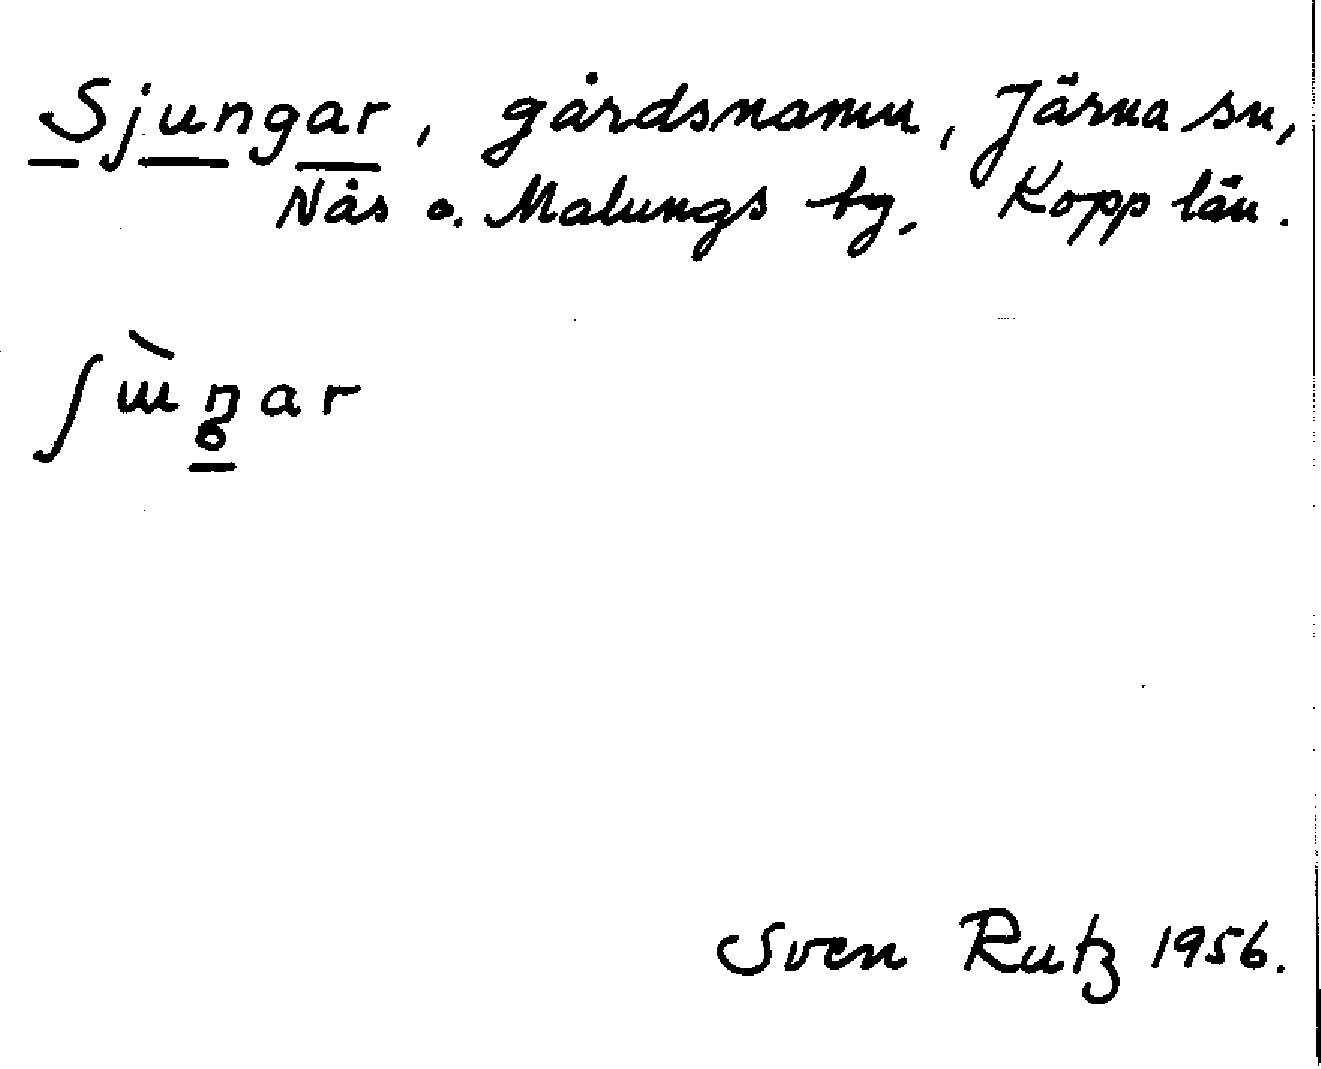 Sjungar, gårdsnamn, Järna sn,
Nås o. Malungs tg. Kopp län.
ʃɯ̀ŋar
Sven Rutz 1956.